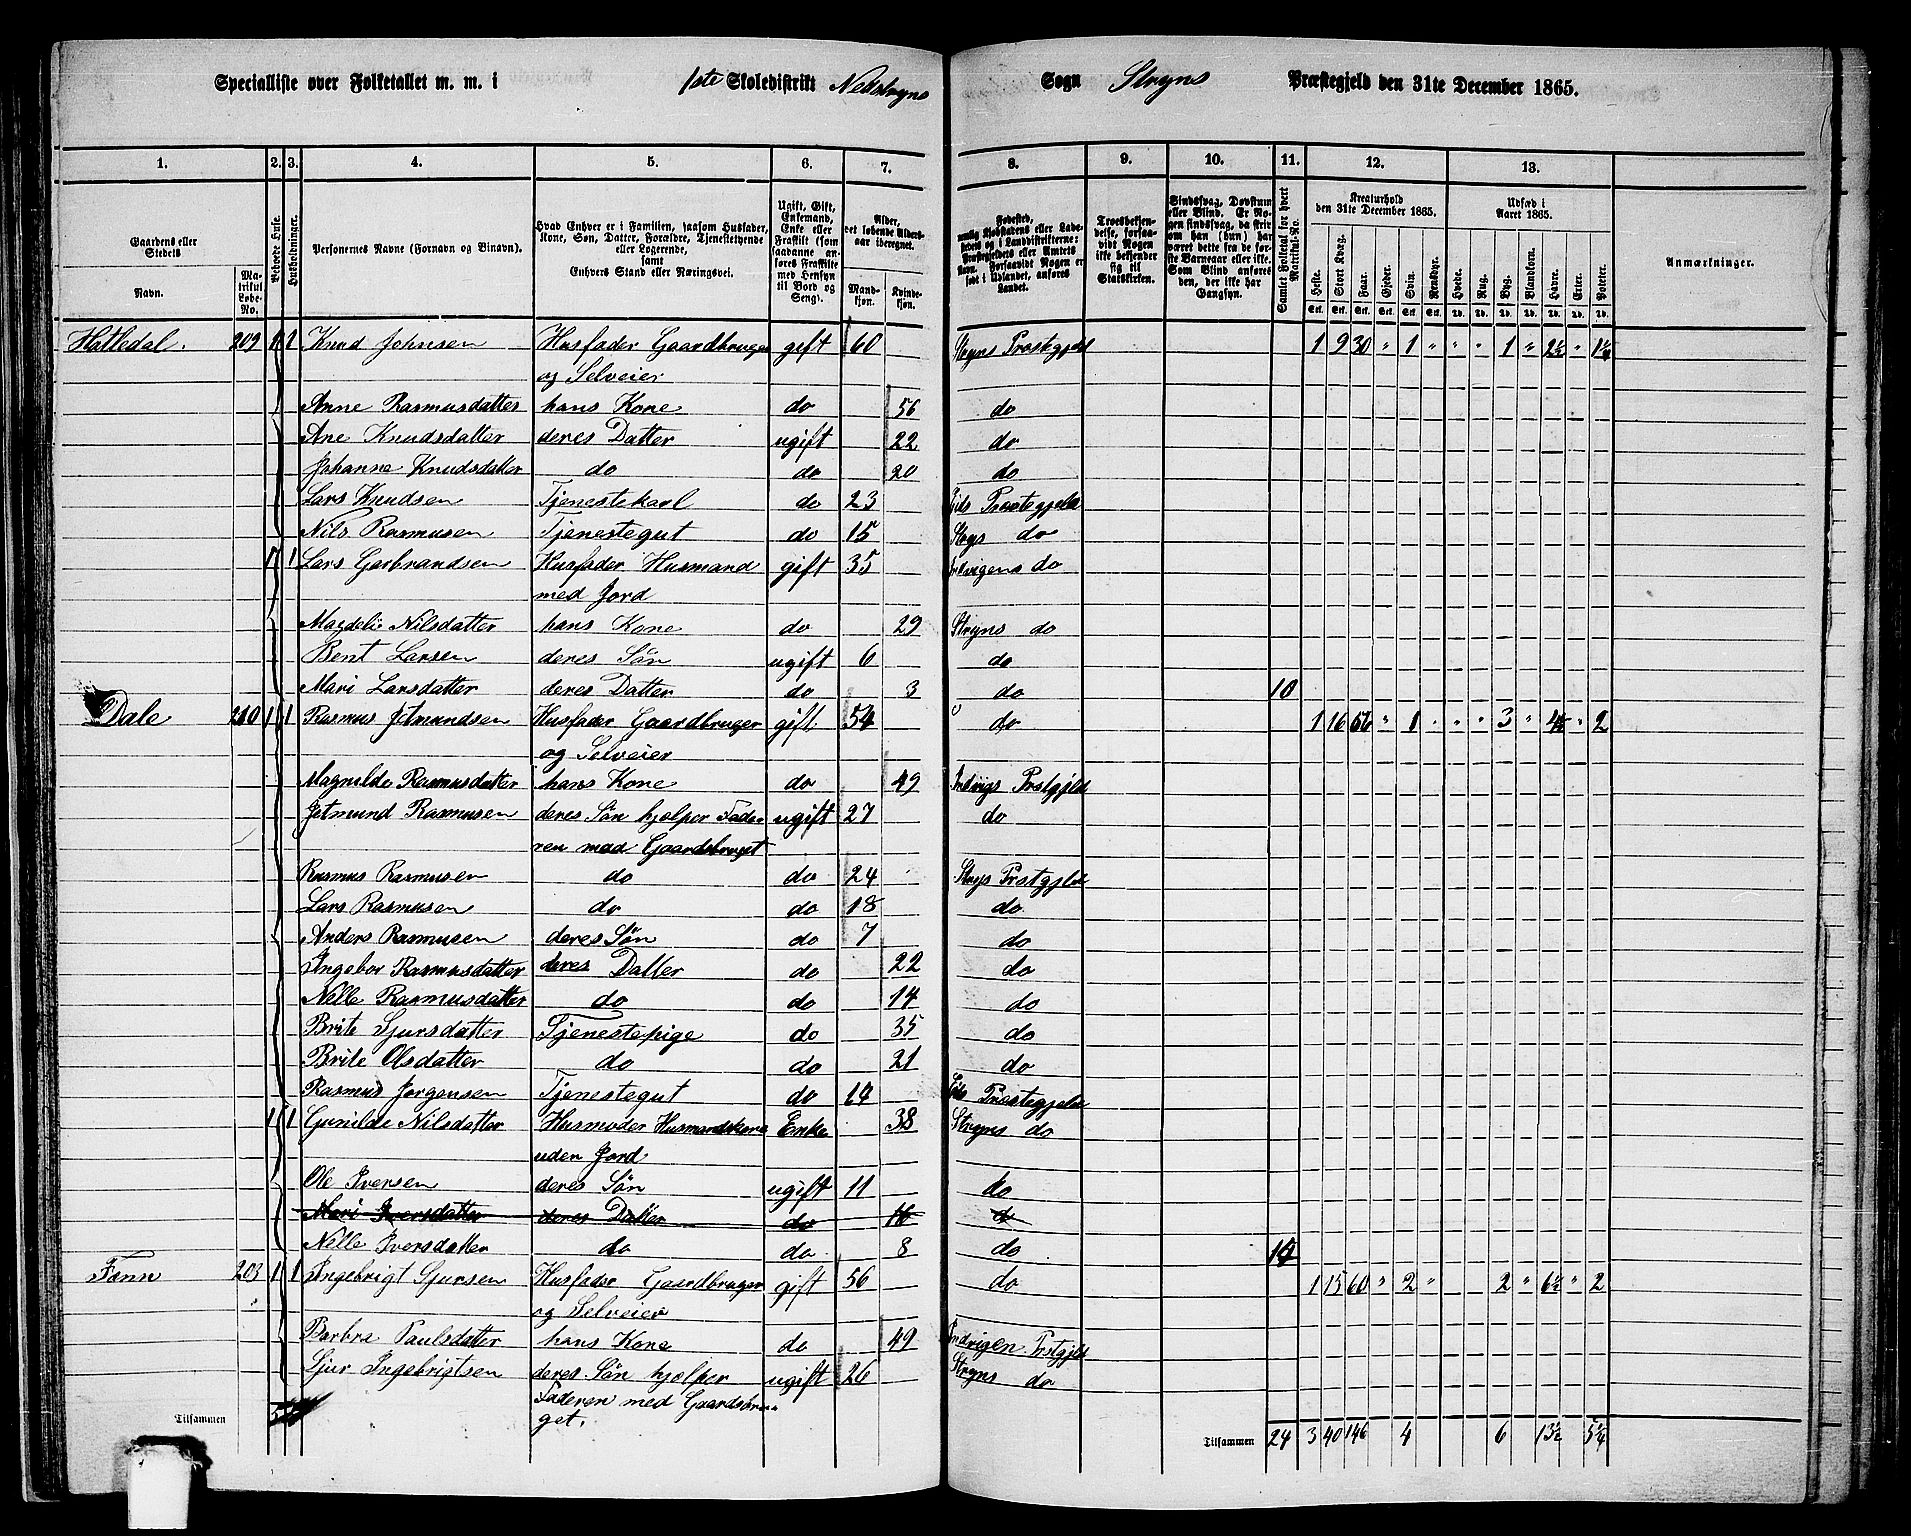 Specialliste over Folketallet m. m. i 1ste Skoledistrikt Nedstryns Sogn Stryns Præstegjeld den 31te December 1865.
1. 2. 3. 4. 5. 6. 7. 8. 9. 10. 11. 12. 13.
Gaardens eller Stedets Navn. Matrikul Løbe-No. Beboede Huse. Husholdninger. Personernes Navne (Fornavn og Binavn).
Hvad Enhver er i Familien, saasom Husfader, Kone, Søn, Datter, Forældre, Tjenestetyende eller Logerende, samt Enhvers Stand eller Næringsvei.
Ugift, Gift, Enkemand, Enke eller Fraskilt (som saadanne anføres Fraskilte med Hensyn til Bord og Seng).
Alder, det løbende Aldersaar iberegnet. Mandkjøn. Kvindekjøn.
Troesbekjendelse, forsaavidt Nogen ikke bekjender sig til Statskirken.
Samlet Folketal for hvert Matrikul-No.
Kreaturhold den 31te December 1865. Heste. Stort Kvæg. Faar. Gjeder. Svin. Rensdyr.
Udsæd i Aaret 1865. Hvede. Rug. Byg. Blandkorn. Havre. Erter. Poteter.
Anmærkninger.
Hatledal. 209 1 1 Knud Johnsen Husfader Gaardbruger gift 60 Stryns Prostegjeld 1 9 30 " 1 " " " 1 " 2½ " 1¼
og Selveier
Anne Rasmusdatter hans Kone do 56 do
Ane Knudsdatter deres Datter ugift 22 do
Johanne Knudsdatter do do 20 do
Lars Knudsen Tjenestekarl do 23 Eids Prostegjeld
Nils Rasmusen Tjenestegut do 15 Stryns do
1 1 Lars Garbrandsen Husfader Husmand gift 35 Indvigens do
med Jord
Magdeli Nilsdatter hans Kone do 29 Stryns do
Bent Larsen deres Søn ugift 6 do
Mari Larsdatter deres Datter do 3 do 10
Dale 210 1 1 Rasmus Jetmundsen Husfader Gaardbruger gift 54 do 1 16 56 " 1 " " " 3 " 4½ " 2
og Selveier
Magnilde Rasmusdatter hans Kone do 49 Indvigs Prstgjeld
Jetmund Rasmusen deres Søn hjelper Fade- ugift 27 do
ren med Gaardsbruget
Rasmus Rasmusen do do 24 Stryns Prstgjeld
Lars Rasmusen do do 18 do
Anders Rasmusen deres Søn do 7 do
Ingebor Rasmusdatter deres Datter do 22 do
Nelle Rasmusdatter do do 14 do
Brite Sjursdatter Tjenestepige do 35 do
Brite Olsdatter do do 21 do
Rasmus Jørgensen Tjenestegut do 14 Eids Prostegjeld
1 1 Gunilde Nilsdatter Husmoder Husmandskone Enke 38 Stryns do
uden Jord
Ole Iversen deres Søn ugift 11 do
Mari Iversdatter deres Datter do 16 do
Nelle Iversdatter do do 8 do 14
Fænn 203 1 1 Ingebrigt Sjursen Husfader Gaardbruger gift 56 do 1 15 60 " 2 " 2 " 6½ " 2
og Selveier
Barbra Paulsdatter hans Kone do 49 Indvigen Prstgjeld
Sjur Ingebrigtsen deres Søn hjelper ugift 26 Stryns do
Faderen med Gaardsbru-
get.
Tilsammen Tilsammen 24 3 40 146 4 6 13½ 5¼